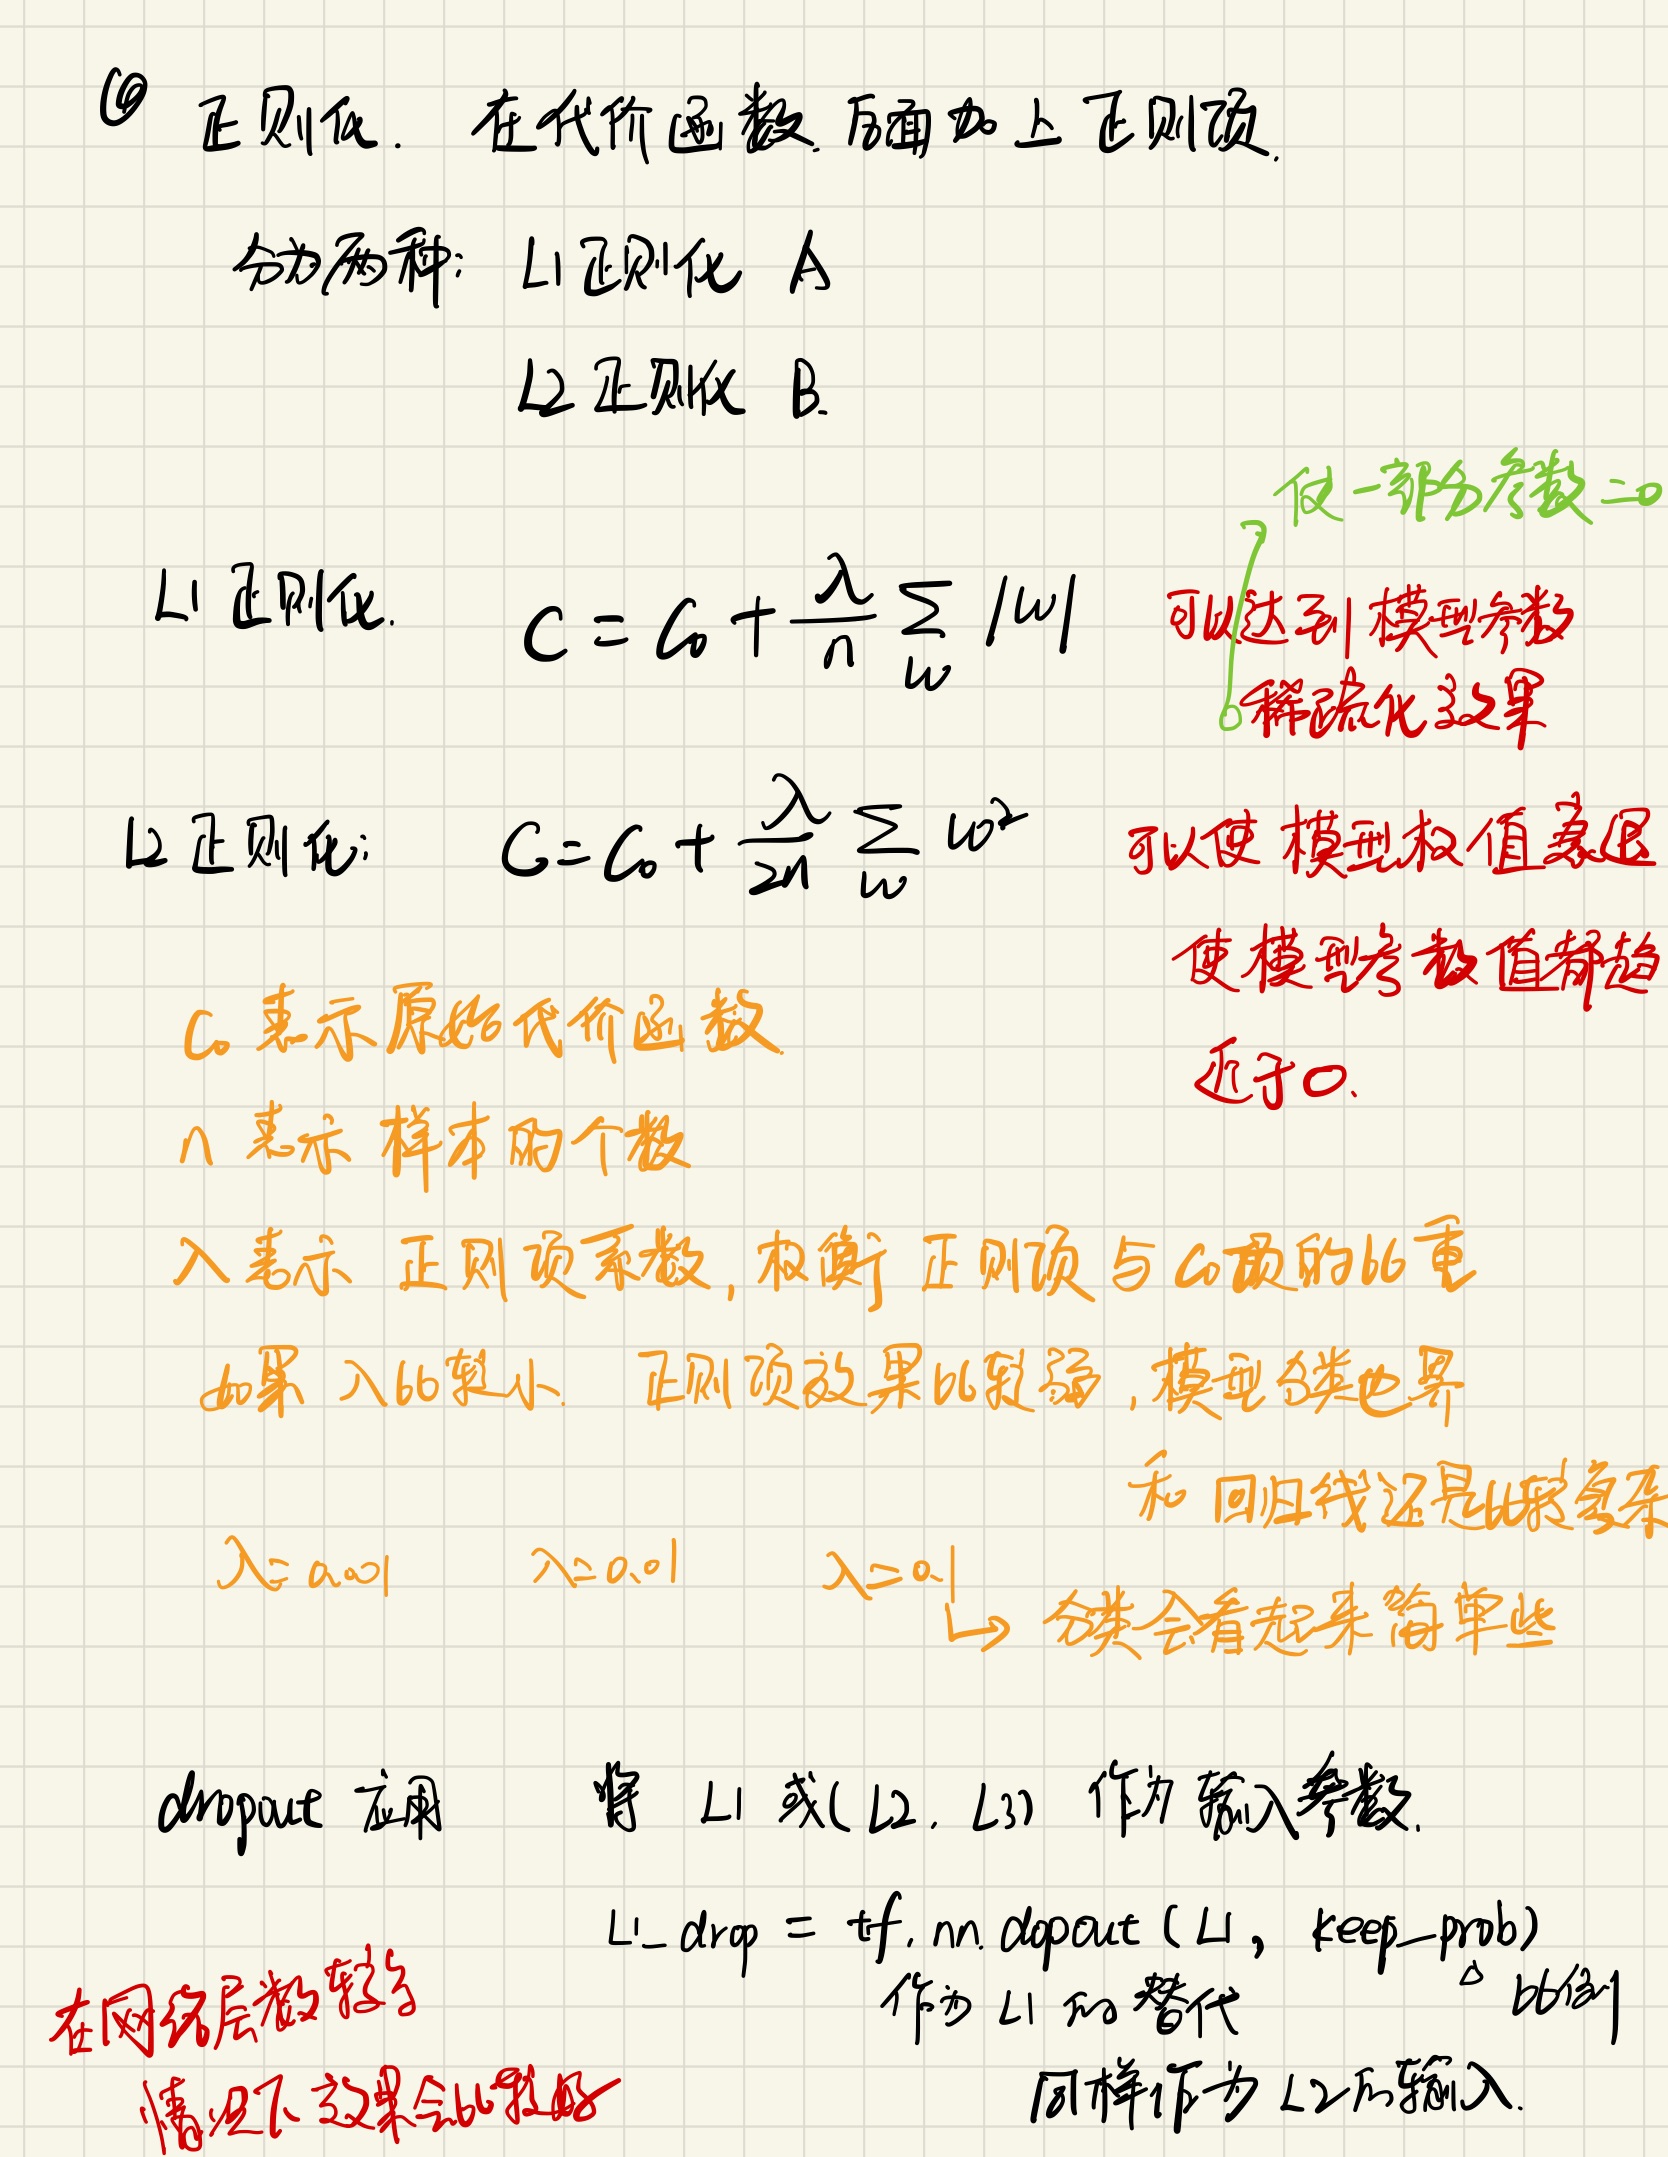 ⑥ 正则化. 在代价函数后面加上正则项.
分为两种: L1正则化 A
L2正则化 B.
使一部分参数=0
L1正则化. C = C₀ + λ/n ∑_w |w|
可以达到模型参数
稀疏化效果
L2正则化: C = C₀ + λ/2n ∑_w w²
可以使模型权值衰退
使模型参数值都趋
近于0.
C₀ 表示原始代价函数
n 表示 样本的个数
λ 表示 正则项系数, 权衡正则项与C₀项的比重
如果 λ比较小. 正则项效果比较弱, 模型分类边界
和 回归线还是比较复杂
λ=0.001 λ=0.01 λ=0.1
↳ 分类会看起来简单些
dropout 应用 将 L1 或(L2. L3) 作为输入参数.
L1_drop = tf.nn.dopout (L1, keep_prob)
作为 L1 的替代 △ 比例
同样作为 L2的输入.
在网络层数较多
情况下效果会比较好